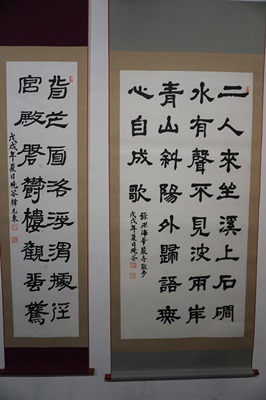 二人來坐溪上石磵
水有聲不見波兩岸
青山斜陽外歸語無
心自成歌
海華嚴寺散步
戊戌年夏日晚谷
背芒面洛浮渭據涇
宮殿盤鬱樓觀飛驚
戊戌年夏日晚谷